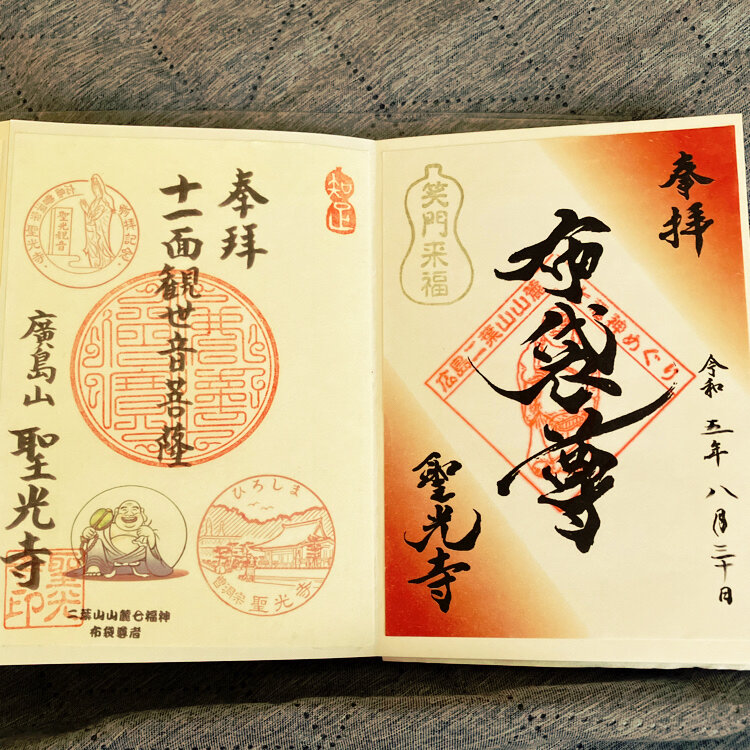 奉拝
布袋尊
聖光寺
令和五年八月三十日
笑門来福
広島二葉山山麓七福神めぐり
知足
奉拝
十一面観世音菩薩
廣島山
聖光寺
聖光観音
ひろしま
曹洞宗 聖光寺
聖光
印
二葉山山麓七福神
布袋尊者